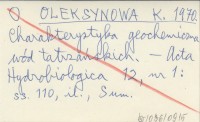 O OLEKSYNOWA K. 1970.
Charakterystyka geochemiczna
wód tatrzańskich. — Acta
Hydrobiologica 12, nr 1:
ss. 110, il., Sum.